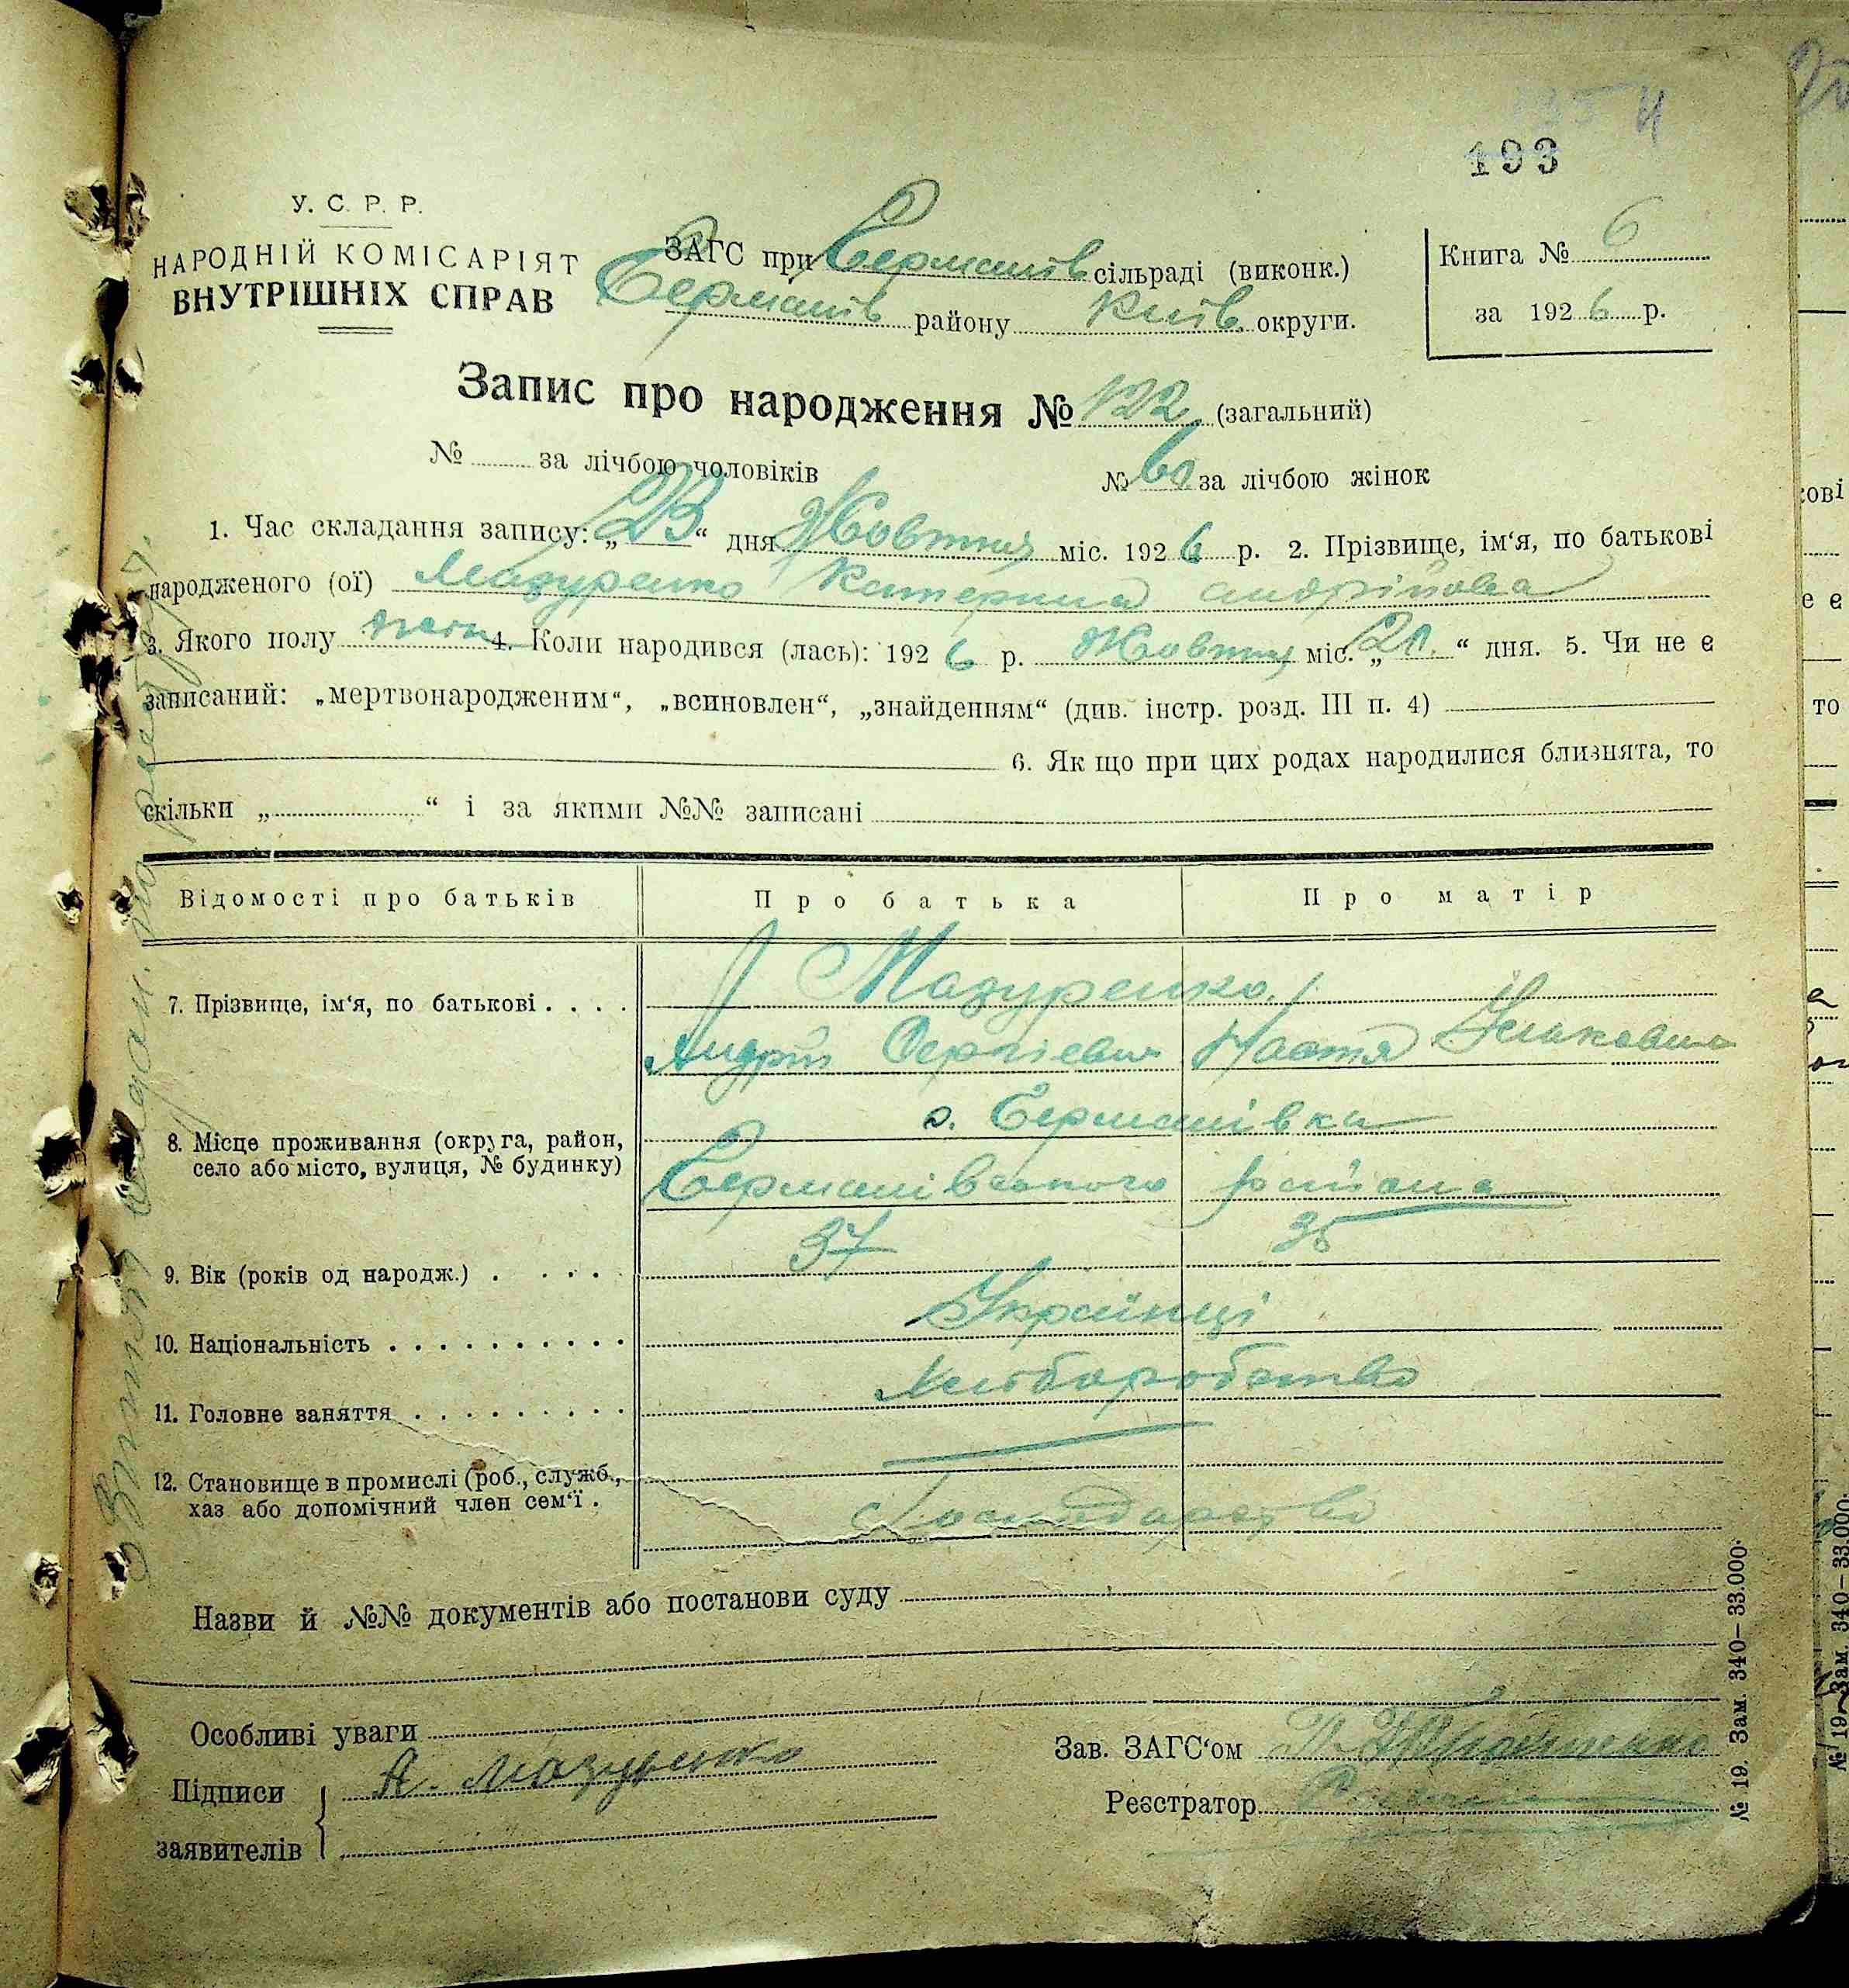 193
У. С. Р. Р.
НАРОДНІЙ КОМІСАРІЯТ
ВНУТРІШНІХ СПРАВ
ЗАГС при Германів сільраді (виконк.)
Германів району Київ. округи.
Книга № 6
за 1926 р.
Запис про народження № 122 (загальний)
№ за лічбою чоловіків № 60 за лічбою жінок
1. Час складання запису: „23“ дня Жовтня міс. 1926 р. 2. Прізвище, ім‘я, по батькові
народженого (ої) Мазуренко Катерина Андріівна
3. Якого полу жін 4. Коли народився (лась): 1926 р. Жовтня міс. „20.“ дня. 5. Чи не є
записаний: „мертвонародженим“, „всиновлен“, „знайденням“ (див. інстр. розд. III п. 4)
6. Як що при цих родах народилися близнята, то
скільки „ “ і за якими №№ записані
Відомості про батьків Про батька Про матір
7. Прізвище, ім‘я, по батькові . . . . Мазуренко
Андрій Сергієвич Настя
8. Місце проживання (округа, район, с. Германівка
село або місто, вулиця, № будинку) Германівського района
9. Вік (років од народж.) . . . . 37 35
10. Національність . . . . . . . . . . Українці
11. Головне заняття . . . . . . . . . Хліборобство
12. Становище в промислі (роб., служб.,
хаз або допомічний член сем‘ї . Господарство
Назви й №№ документів або постанови суду
Особливі уваги
Підписи А. Мазуренко
заявителів
Зав. ЗАГС‘ом
Реєстратор
№ 19. Зам. 340–33.000.